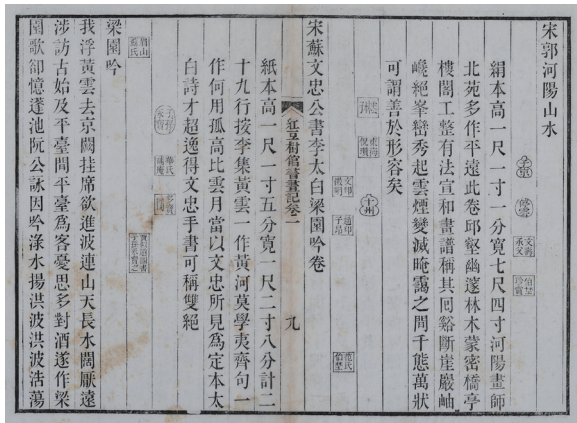 宋郭河陽山水
絹本高一尺一寸一分寬七尺四寸河陽畫師
北苑多作平遠此卷邱壑幽邃林木蒙密橋亭
樓閣工整有法宣和畫譜稱其回谿斷崖巖岫
巉絕峯巒秀起雲煙變滅晻靄之間千態萬狀
可謂善於形容矣
宋蘇文忠公書李太白梁園吟卷
紅豆樹館書畫記卷一
九
紙本高一尺一寸五分寬一尺二寸八分計二
十九行按李集黃雲一作黃河莫學夷齊句一
作何用孤高比雲月當以文忠所見為定本太
白詩才超逸得文忠手書可稱雙絕
梁園吟
我浮黃雲去京闕挂席欲進波連山天長水闊厭遠
涉訪古始及平臺間平臺爲客憂思多對酒遂作梁
園歌卻憶蓬池阮公詠因吟淥水揚洪波洪波浩蕩